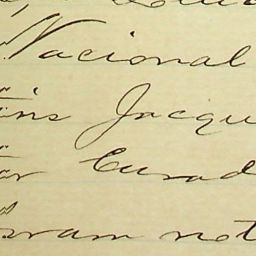 Nacional
ins Jacqu
ar Curad
oram not